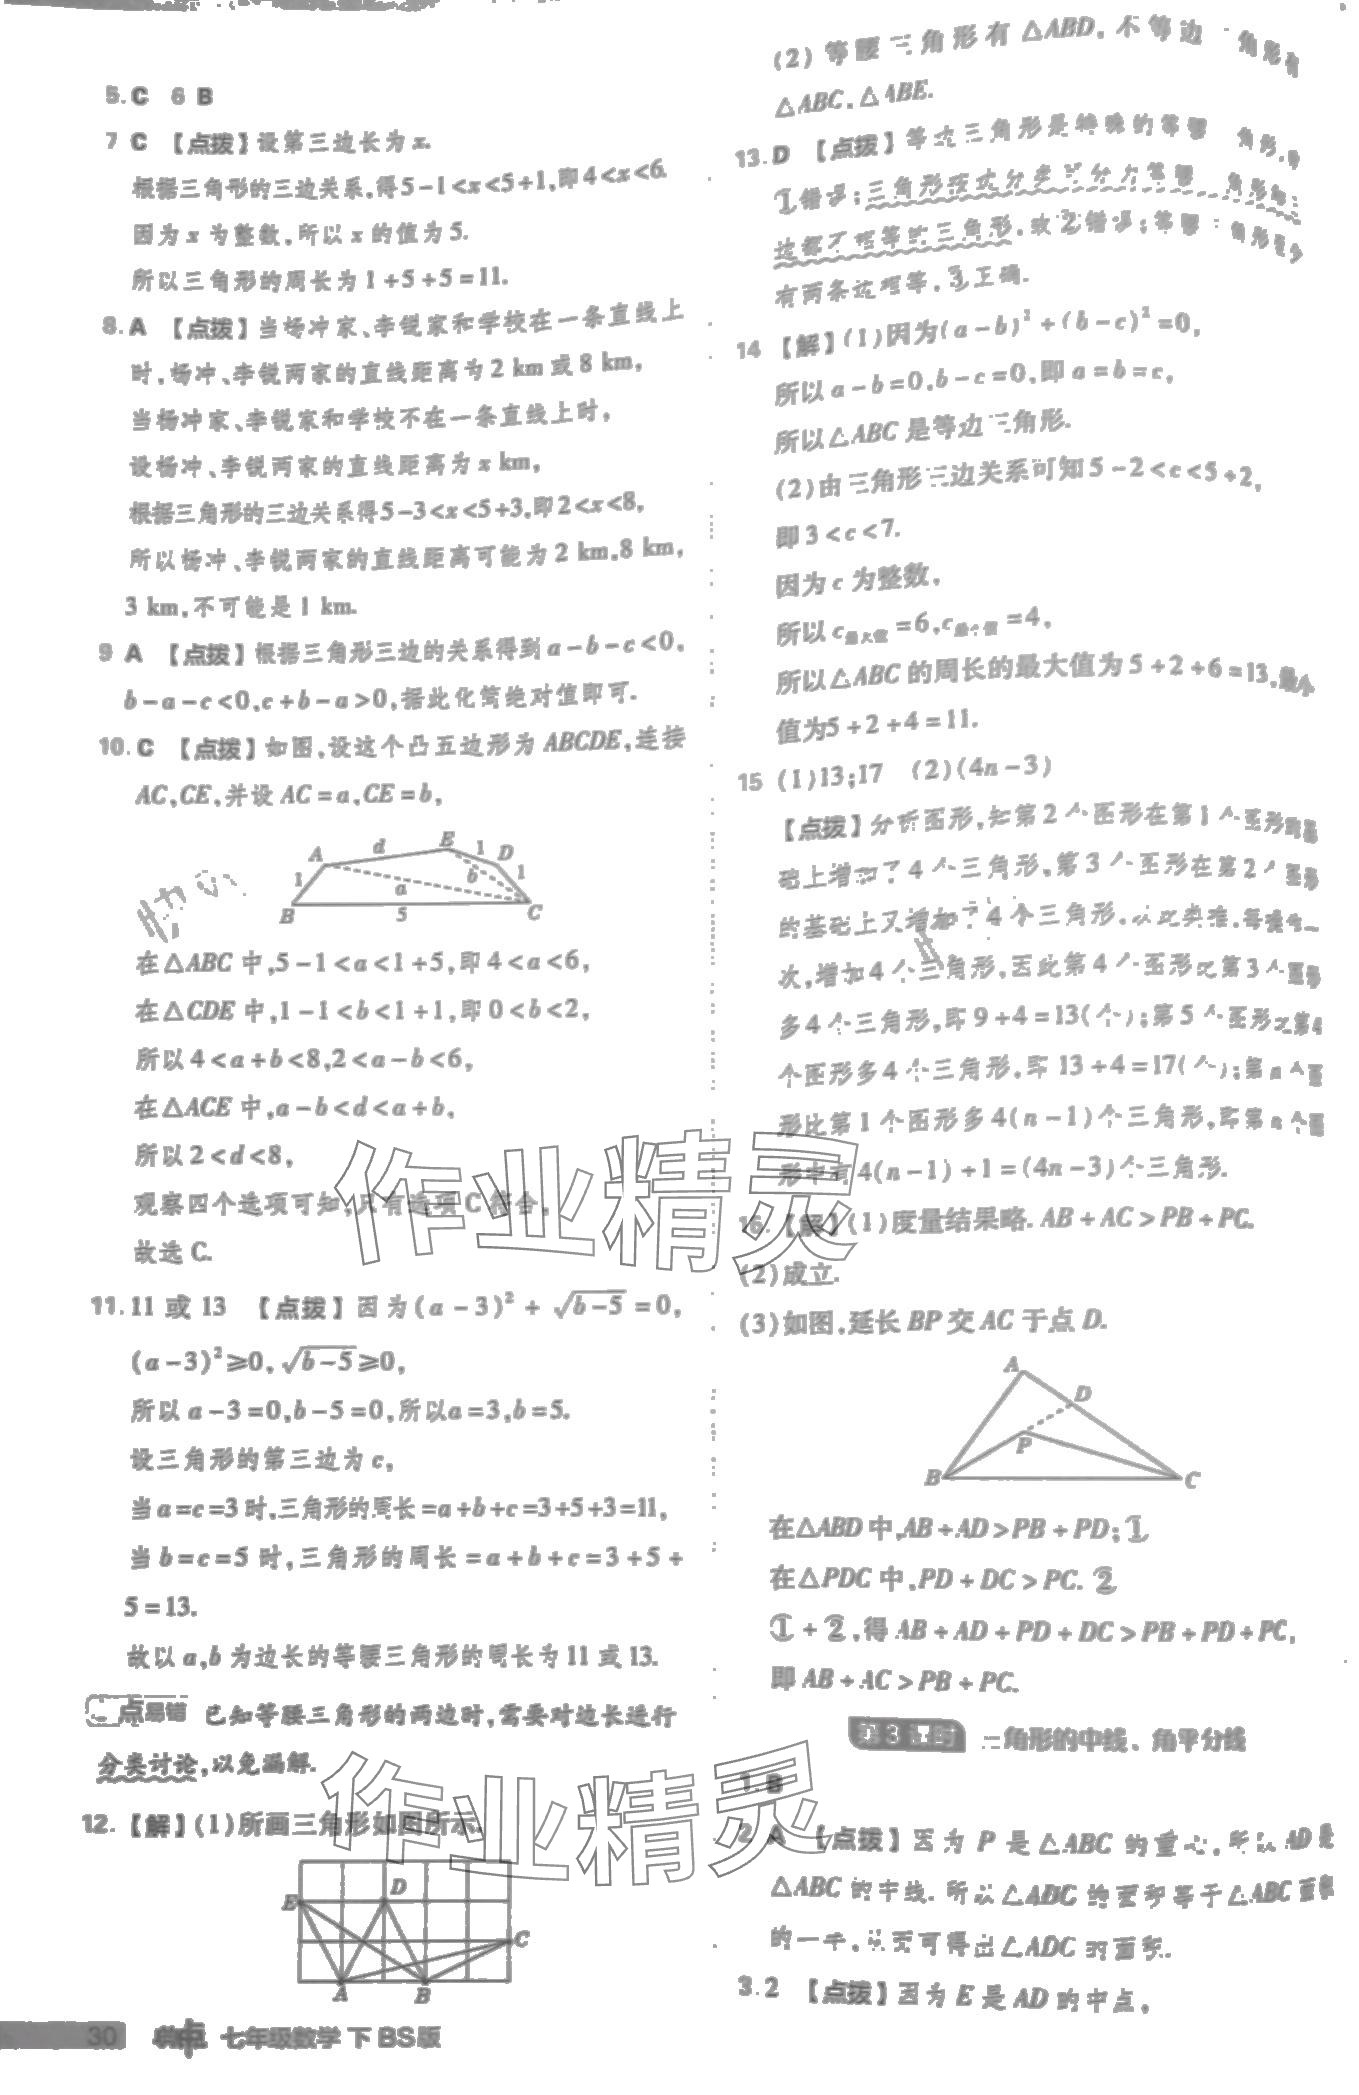 5. C 6 B
7 C 【点拨】设第三边长为 x.
根据三角形的三边关系,得5-1<x<5+1,即4<x<6.
因为 x 为整数,所以 x 的值为 5.
所以三角形的周长为 1+5+5=11.
8. A 【点拨】当杨冲家、李锐家和学校在一条直线上
时,杨冲、李锐两家的直线距离为 2 km 或 8 km,
当杨冲家、李锐家和学校不在一条直线上时,
设杨冲、李锐两家的直线距离为 x km,
根据三角形的三边关系得5-3<x<5+3,即2<x<8,
所以杨冲、李锐两家的直线距离可能为 2 km,8 km,
3 km,不可能是 1 km.
9 A 【点拨】根据三角形三边的关系得到 a-b-c<0,
b-a-c<0,c+b-a>0,据此化简绝对值即可.
10. C 【点拨】如图,设这个凸五边形为 ABCDE,连接
AC,CE,并设 AC=a,CE=b,
A d E 1 D
1 a b 1
B 5 C
在△ABC 中,5-1<a<1+5,即 4<a<6,
在△CDE 中,1-1<b<1+1,即 0<b<2,
所以 4<a+b<8,2<a-b<6,
在△ACE 中,a-b<d<a+b,
所以 2<d<8,
观察四个选项可知,只有选项 C 符合,
故选 C.
11. 11 或 13 【点拨】因为(a-3)²+√(b-5)=0,
(a-3)²≥0,√(b-5)≥0,
所以 a-3=0,b-5=0,所以a=3,b=5.
设三角形的第三边为 c,
当 a=c=3 时,三角形的周长=a+b+c=3+5+3=11,
当 b=c=5 时,三角形的周长=a+b+c=3+5+
5=13.
故以 a,b 为边长的等腰三角形的周长为 11 或 13.
点易错 已知等腰三角形的两边时,需要对边长进行
分类讨论,以免漏解.
12. 【解】(1)所画三角形如图所示.
E D C
A B
30 典中 七年级数学 下 BS版
(2) 等腰三角形有 △ABD, 不等边 角形有
△ABC,△ABE.
13. D 【点拨】等边三角形是特殊的等腰 角形,故
①错误;三角形按边分类可分为等腰 角形和
边都不相等的三角形,故②错误;等腰 角形至少
有两条边相等,③正确.
14 【解】(1)因为(a-b)²+(b-c)²=0,
所以 a-b=0,b-c=0,即 a=b=c,
所以△ABC 是等边三角形.
(2)由三角形三边关系可知 5-2<c<5+2,
即 3<c<7.
因为 c 为整数,
所以 c最大值=6,c最小值=4,
所以△ABC 的周长的最大值为 5+2+6=13,最小
值为5+2+4=11.
15 (1)13;17 (2)(4n-3)
【点拨】分析图形,知第 2 个图形在第 1 个图形的基
础上增加了 4 个三角形,第 3 个图形在第 2 个图形
的基础上又增加了 4 个三角形,以此类推,每增加一
次,增加 4 个三角形,因此第 4 个图形比第 3 个图形
多 4 个三角形,即 9+4=13(个);第 5 个图形比第 4
个图形多 4 个三角形,即 13+4=17(个);第 n 个图
形比第 1 个图形多 4(n-1)个三角形,即第 n 个图
形中有 4(n-1)+1=(4n-3)个三角形.
16. 【解】(1)度量结果略. AB+AC>PB+PC.
(2)成立.
(3)如图,延长 BP 交 AC 于点 D.
A
D
P
B C
在△ABD 中,AB+AD>PB+PD;①
在△PDC 中,PD+DC>PC. ②
①+②,得 AB+AD+PD+DC>PB+PD+PC,
即 AB+AC>PB+PC.
第3课时 三角形的中线、角平分线
1. B
2 A 【点拨】因为 P 是△ABC 的重心,所以 AD 是
△ABC 的中线.所以△ADC 的面积等于△ABC 面积
的一半,从而可得出△ADC 的面积.
3. 2 【点拨】因为 E 是 AD 的中点,
作业精灵
作业精灵